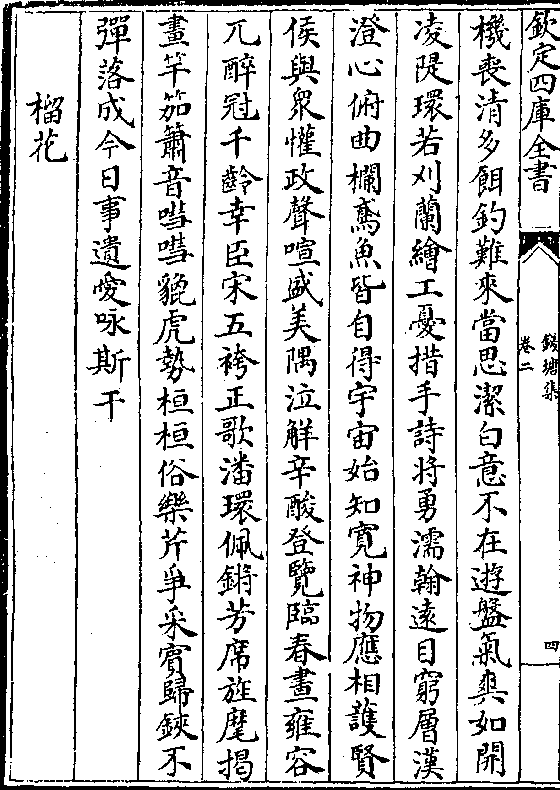 欽定四庫全書
錢塘集
卷二
四
機喪清多餌釣難來當思潔白意不在遊盤氣爽如開
凌隄環若刈蘭繪工憂措手詩將勇濡翰遠目窮層漢
澄心俯曲欄鳶魚皆自得宇宙始知寛神物應相護賢
侯與衆懽政聲喧盛美隅泣解辛酸登覽臨春晝雍容
兀醉冠千齡幸臣宋五袴正歌潘環佩鏘芳席旌麾揭
畫竿笳簫音嘒嘒貔虎勢桓桓俗樂芹爭采賔歸鋏不
彈落成今日事遺愛咏斯干
榴花